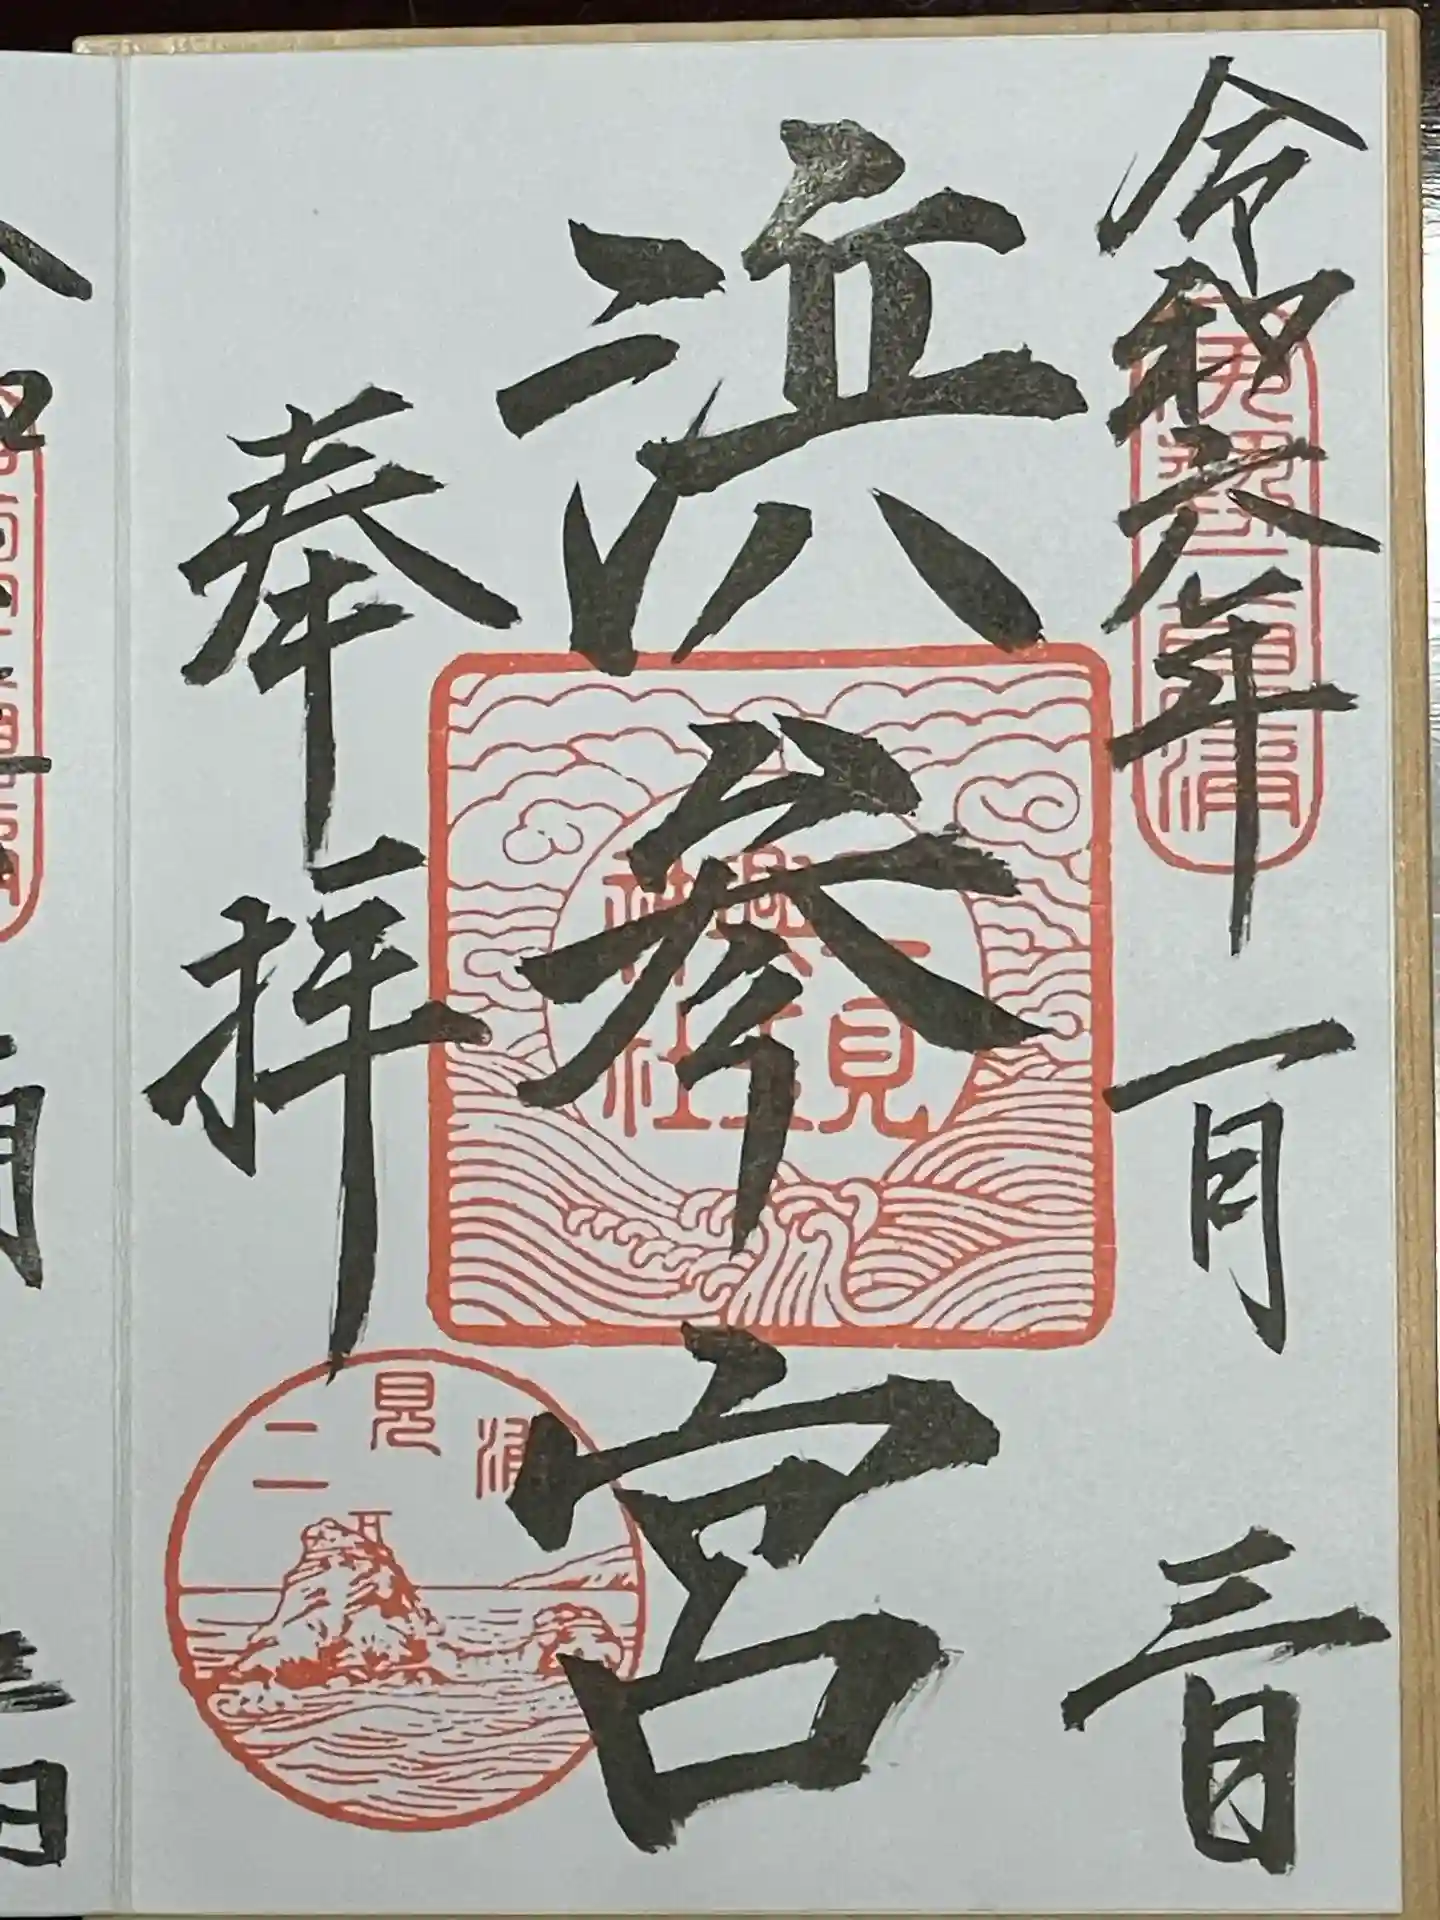 令和六年一月三日
伊勢二見浦
浜参宮
二見
興玉
神社
奉拝
二見浦